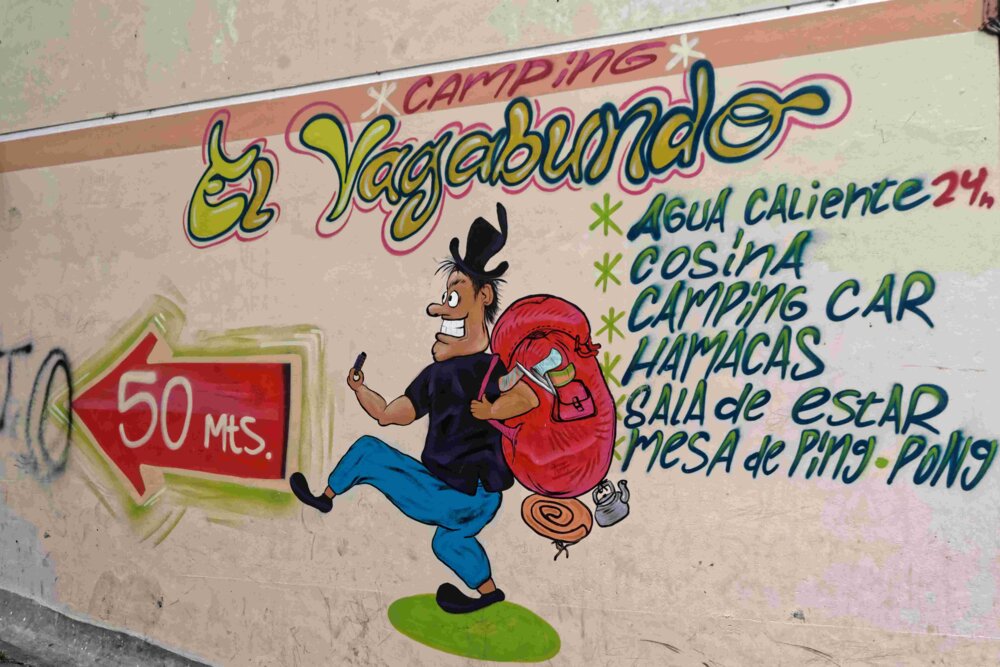 * CAMPiNG *
El Vagabundo
* AGUA CALiENTE 24h
* COSiNA
* CAMPiNG CAR
* HAMACAS
* SALA de eStAR
* MESA de PiNg · PONg
50 Mts.